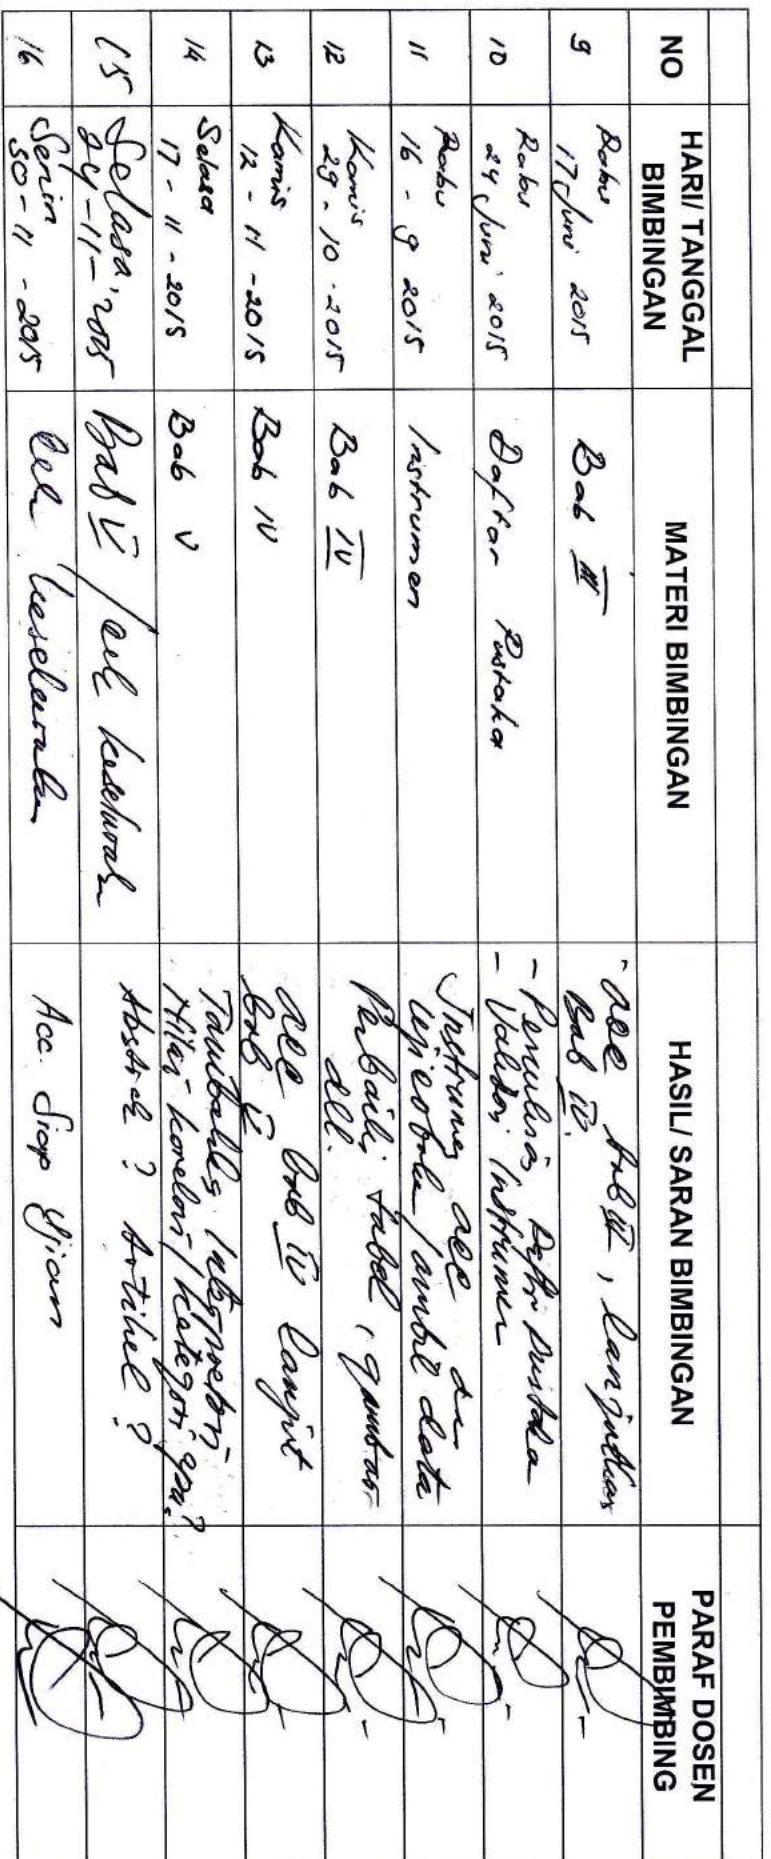 NO
HARI/ TANGGAL
BIMBINGAN
MATERI BIMBINGAN
HASIL/ SARAN BIMBINGAN
PARAF DOSEN
PEMBIMBING
9
Rabu
17 Juni 2015
Bab III
- acc bab III, lanjutkan
Bab IV.
10
Rabu
24 Juni 2015
Daftar Pustaka
- Penulisan Daftar Pustaka
- Validasi Instrumen
11
Rabu
16 - 9 2015
Instrumen
Instrumen acc di
ujicoba / ambil data
12
Kamis
29 - 10 - 2015
Bab IV
Perbaiki tabel, gambar
dll.
13
Kamis
12 - 11 - 2015
Bab IV
acc bab IV lanjut
bab V
14
Selasa
17 - 11 - 2015
Bab V
Tambahkan Interpretasi
Nilai korelasi / kategori apa?
15
Selasa, 24-11-2015
Bab V / cek keseluruhan
Abstrak ? Artikel ?
16
Senin
30 - 11 - 2015
Cek keseluruhan
Acc. Siap Ujian